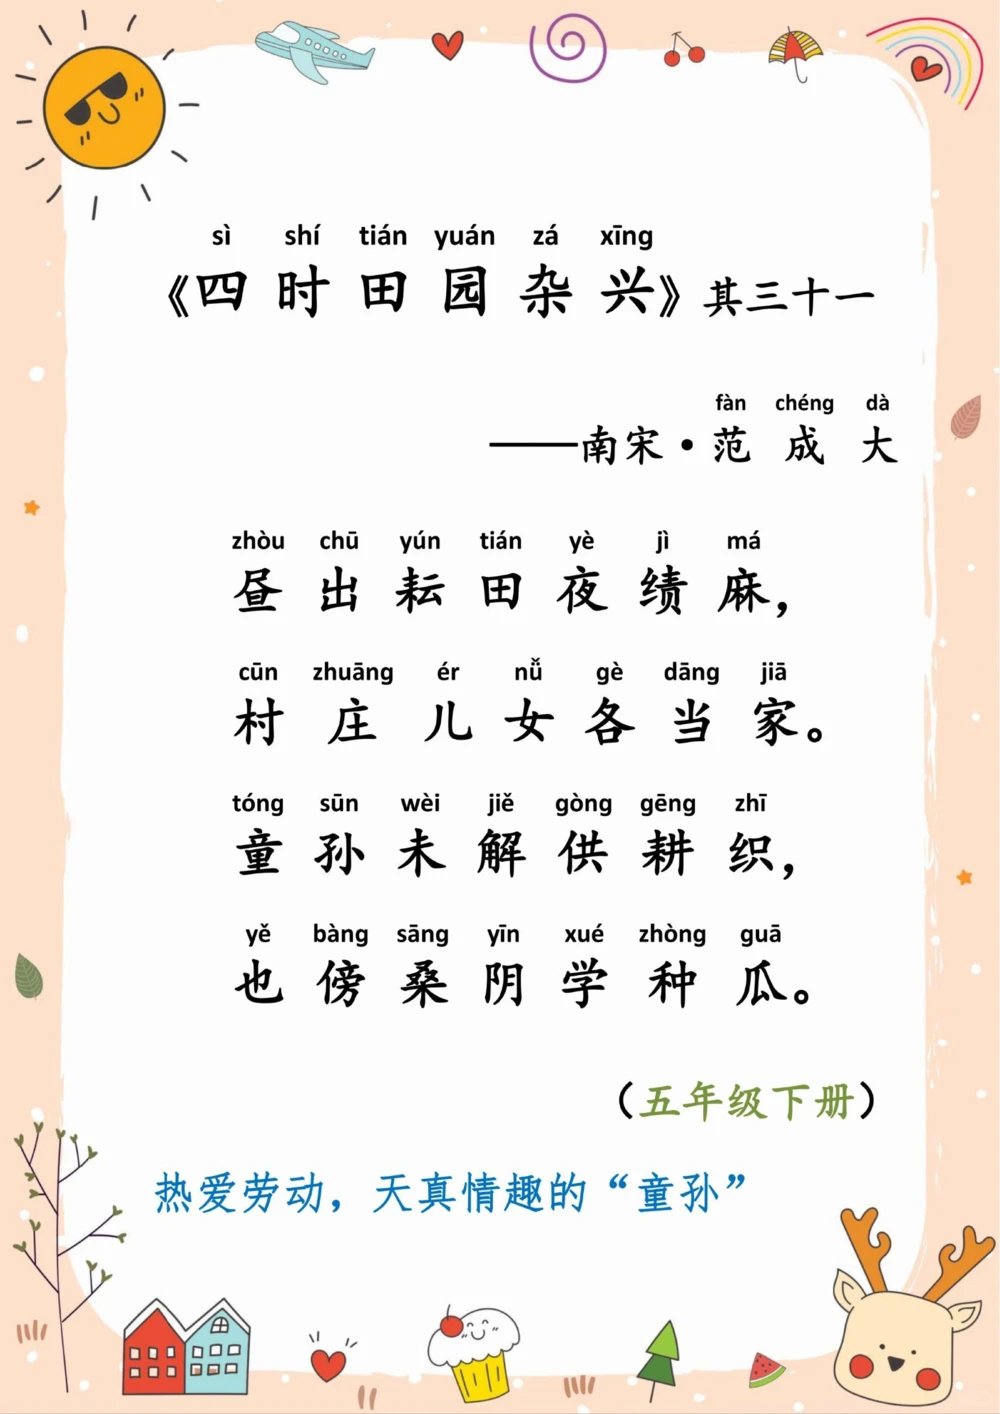 sì shí tián yuán zá xīng
《四时田园杂兴》其三十一
fàn chéng dà
——南宋·范成大
zhòu chū yún tián yè jì má
昼出耘田夜绩麻，
cūn zhuāng ér nǚ gè dāng jiā
村庄儿女各当家。
tóng sūn wèi jiě gòng gēng zhī
童孙未解供耕织，
yě bàng sāng yīn xué zhòng guā
也傍桑阴学种瓜。
（五年级下册）
热爱劳动，天真情趣的“童孙”